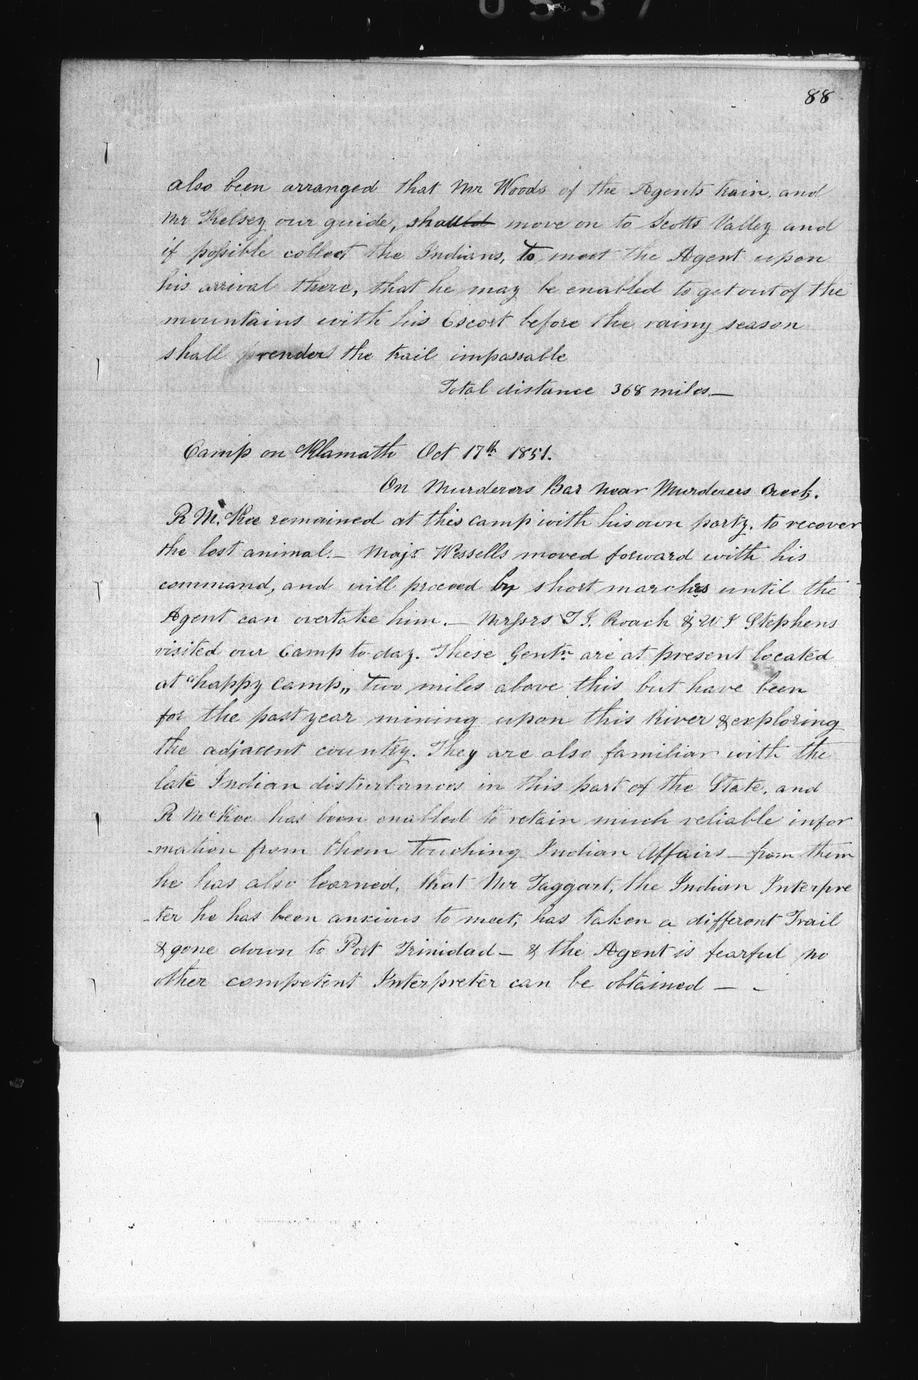 0537
88
also been arranged that Mr Woods of the Agents train, and
Mr Kelsey our guide, should move on to Scotts Valley and
if possible collect the Indians, to meet the Agent upon
his arrival there, that he may be enabled to get out of the
mountains with his Escort before the rainy season
shall render the trail impassable
Total distance 368 miles.—
Camp on Klamath Oct 17th 1851.
On Murderers Bar near Murderers Creek.
R Mc.Kee remained at this camp with his own party, to recover
the lost animal.— Majr Wessells moved forward with his
command, and will proceed by short marches until the
Agent can overtake him.— Messrs T.J. Roach & W J Stephens
visited our Camp to-day. These Gentn are at present located
at "happy Camp" two miles above this but have been
for the past year mining upon this River & exploring
the adjacent country. They are also familiar with the
late Indian disturbances in this part of the State, and
R McKee has been enabled to retain much reliable infor
-mation from them touching Indian Affairs — from them
he has also learned, that Mr Taggart, the Indian Interpre
-ter he has been anxious to meet, has taken a different Trail
& gone down to Port Trinidad — & the Agent is fearful no
other competent Interpreter can be obtained — -